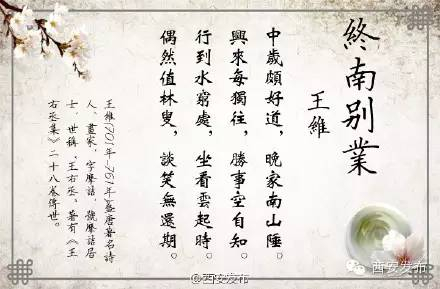 終南别業
王維
中歲頗好道，晚家南山陲。
興來每獨往，勝事空自知。
行到水窮處，坐看雲起時。
偶然值林叟，談笑無還期。
王維(701年－761年)盛唐著名詩
人、畫家，字摩詰，號摩詰居
士，世稱「王右丞」，著有《王
右丞集》二十八卷傳世。
@西安发布
西安发布